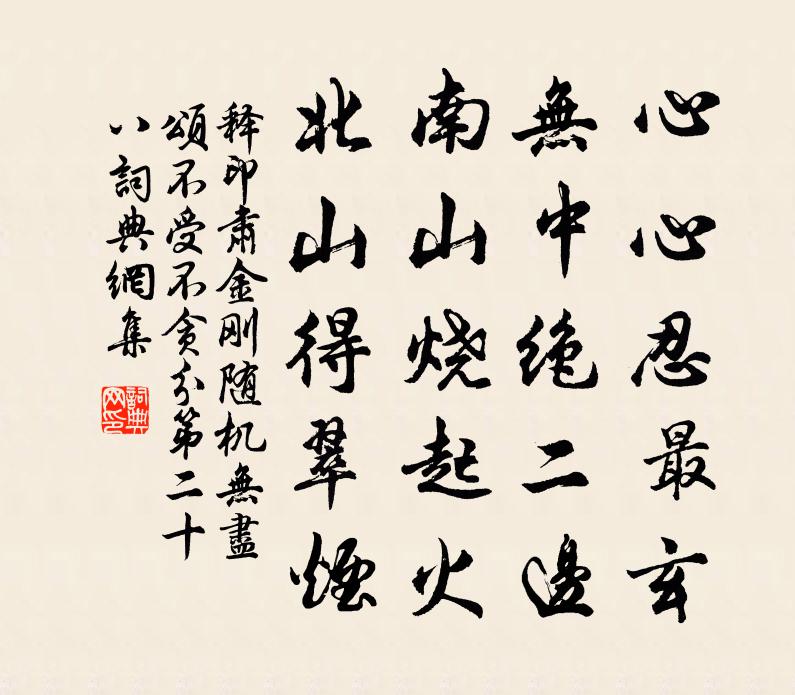 心心忍最玄
無中绝二邊
南山烧起火
北山得翠煙
释印肃金刚随机無盡
頌不受不贪分第二十
八詞典網集
詞典
网印